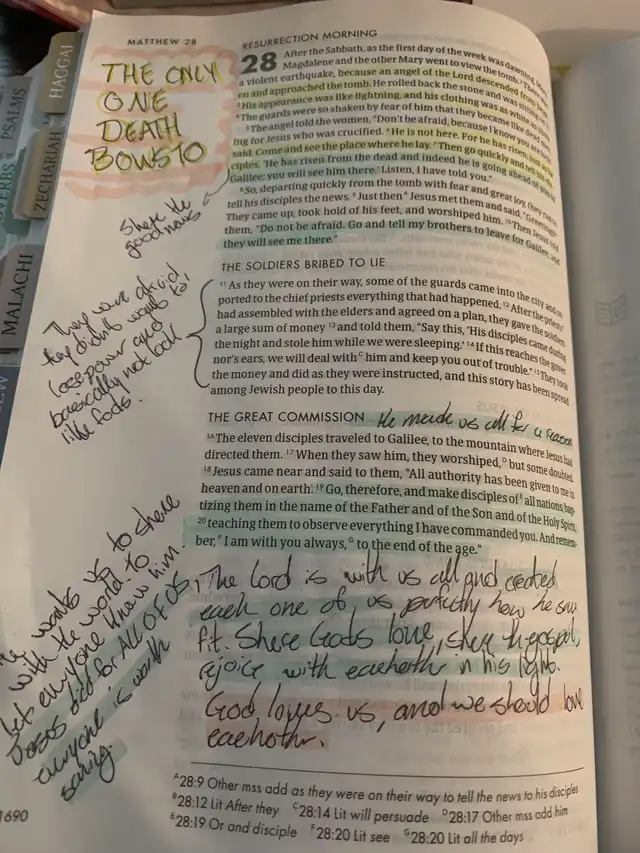 HAGGAI
PSALMS
ZECHARIAH
MALACHI
MATTHEW 28
THE ONLY
ONE
DEATH
BOWS TO
Share the
good news
They were afraid,
they didn't want to
lose power and
basically not look
like fools.
RESURRECTION MORNING
28 After the Sabbath, as the first day of the week was dawning, Mary
Magdalene and the other Mary went to view the tomb. ²There was
a violent earthquake, because an angel of the Lord descended from heav-
en and approached the tomb. He rolled back the stone and was sitting on it.
³His appearance was like lightning, and his clothing was as white as snow.
⁴The guards were so shaken by fear of him that they became like dead men.
⁵The angel told the women, "Don't be afraid, because I know you are look-
ing for Jesus who was crucified. ⁶He is not here. For he has risen, just as he
said. Come and see the place where he lay. ⁷Then go quickly and tell his dis-
ciples, 'He has risen from the dead and indeed he is going ahead of you to
Galilee; you will see him there.' Listen, I have told you."
⁸So, departing quickly from the tomb with fear and great joy, they ran to
tell his disciples the news. ⁹Just then^A Jesus met them and said, "Greetings!"
They came up, took hold of his feet, and worshiped him. ¹⁰Then Jesus told
them, "Do not be afraid. Go and tell my brothers to leave for Galilee, and
they will see me there."
THE SOLDIERS BRIBED TO LIE
¹¹As they were on their way, some of the guards came into the city and re-
ported to the chief priests everything that had happened. ¹²After the priests^B
had assembled with the elders and agreed on a plan, they gave the soldiers
a large sum of money ¹³and told them, "Say this, 'His disciples came during
the night and stole him while we were sleeping.' ¹⁴If this reaches the gover-
nor's ears, we will deal with^C him and keep you out of trouble." ¹⁵They took
the money and did as they were instructed, and this story has been spread
among Jewish people to this day.
THE GREAT COMMISSION He made us all for a reason
¹⁶The eleven disciples traveled to Galilee, to the mountain where Jesus had
directed them. ¹⁷When they saw him, they worshiped,^D but some doubted.
¹⁸Jesus came near and said to them, "All authority has been given to me in
heaven and on earth. ¹⁹Go, therefore, and make disciples of^E all nations, bap-
tizing them in the name of the Father and of the Son and of the Holy Spirit,
²⁰teaching them to observe everything I have commanded you. And remem-
ber,^F I am with you always,^G to the end of the age."
wants us to share
with the world. To
let everyone know him.
Jesus died for ALL OF US,
everyone is worth
saving.
The Lord is with us all and created
each one of us perfectly how he saw
fit. Share Gods love, share the gospel,
rejoice with eachothr in his lights.
God loves us, and we should love
eachothr.
^A28:9 Other mss add as they were on their way to tell the news to his disciples
^B28:12 Lit After they ^C28:14 Lit will persuade ^D28:17 Other mss add him
^E28:19 Or and disciple ^F28:20 Lit see ^G28:20 Lit all the days
1690